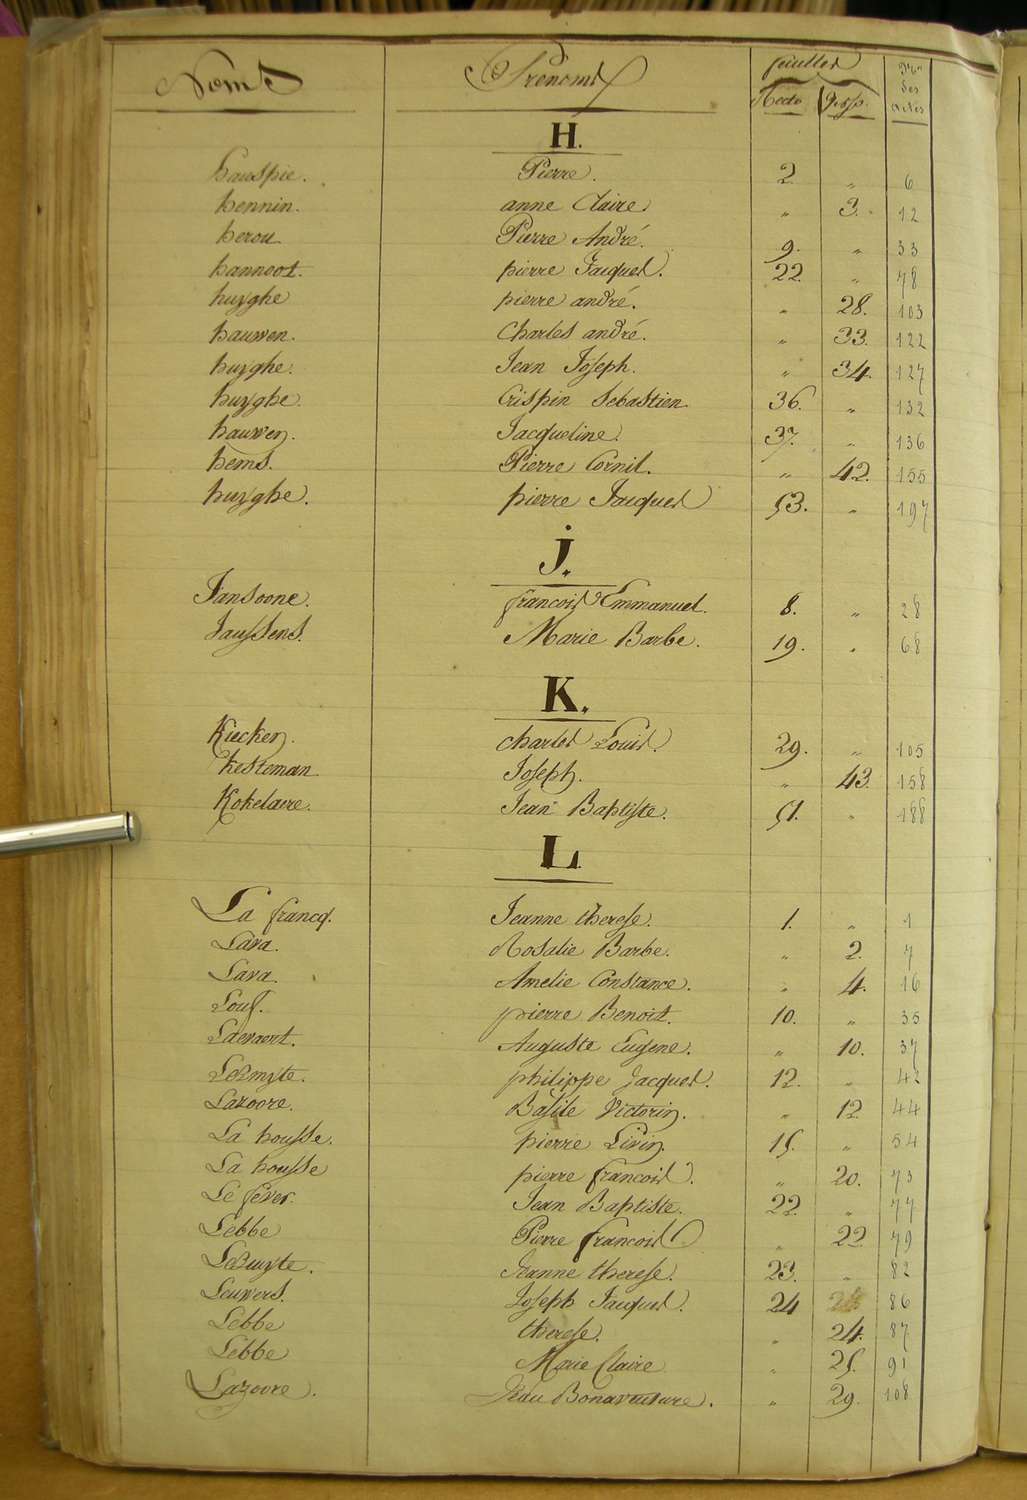 Noms Prénoms feuillets Nos des actes
Recto Verso
H.
hauspie. Pierre. 2. " 6
hennin. anne Claire. " 3. 12
herou. Pierre André. 9. " 33
hannoot. pierre Jacques. 22. " 78
huyghe pierre andré. " 28. 103
hauwen. Charles andré. " 33. 122
huyghe. Jean Joseph. " 34. 127
huyghe. Crispin Sebastien. 36. " 132
hauwen. Jacqueline. 37. " 136
hems. Pierre Cornil. " 42. 155
huyghe. pierre Jacques 53. " 197
J.
Jansoone. francois Emmanuel. 8. " 28
Jaussens. Marie Barbe. 19. " 68
K.
Kiecken. charles Louis. 29. " 105
Kesteman. Joseph. " 43. 158
Kokelaere. Jean Baptiste. 51. " 188
L.
La francq. Jeanne therese. 1. " 1
Lava. Rosalie Barbe. " 2. 7
Lava. Amelie Constance. " 4. 16
Louf. pierre Benoit. 10. " 35
Laevaert. Auguste Eugene. " 10. 37
philippe Jacques. 12. " 42
Lazoore. Basile Victorin. " 12 44
La housse. pierre Livin. 15. " 54
La housse pierre francois. " 20. 73
Le fever. Jean Baptiste. 22. " 77
Lebbe Pierre francois " 22 79
Jeanne therese. 23. " 82
Leuvers. Joseph Jacques. 24 86
Lebbe therese. " 24. 87
Lebbe Marie Claire " 25. 91
Lazoore. Jean Bonaventure. " 29. 108